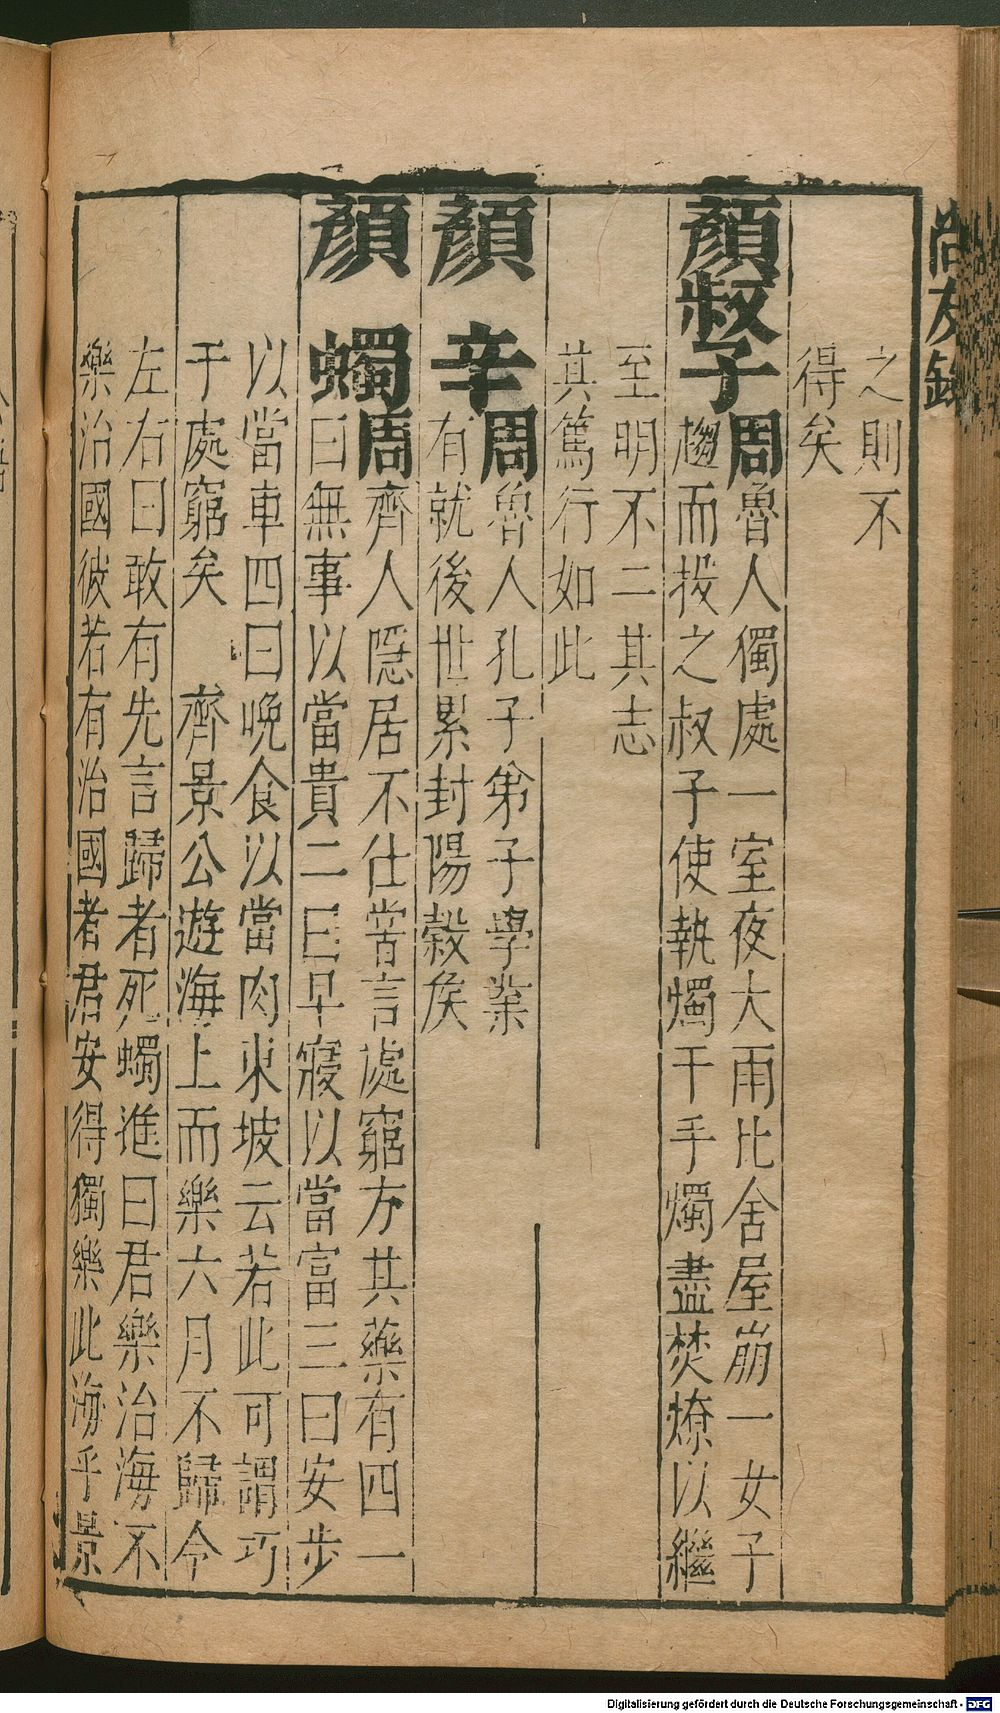 尚友錄
之則不
得矣
顏叔子周魯人獨處一室夜大雨比舍屋崩一女子
趨而投之叔子使執燭于手燭盡焚燎以繼
至明不二其志
其篤行如此
顏辛周魯人孔子弟子學業
有就後世累封陽穀侯
顏蠋周齊人隱居不仕嘗言處窮方其藥有四一
曰無事以當貴二曰早寢以當富三曰安步
以當車四曰晚食以當肉東坡云若此可謂巧
于處窮矣 齊景公遊海上而樂六月不歸令
左右曰敢有先言歸者死蠋進曰君樂治海不
樂治國彼若有治國者君安得獨樂此海乎景
Digitalisierung gefördert durch die Deutsche Forschungsgemeinschaft - DFG